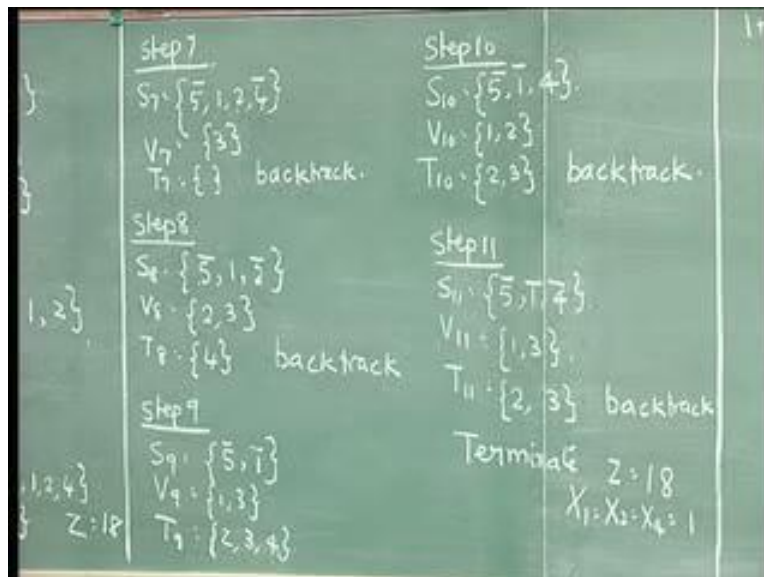 }
}
1, 2}
, 1, 2, 4}
} Z = 18
Step 7
S₇ = {5̅, 1, 2, 4̅}
V₇ = {3}
T₇ = { } backtrack.
Step 8
S₈ = {5̅, 1, 2̅}
V₈ = {2, 3}
T₈ = {4} backtrack
Step 9
S₉ = {5̅, 1̅}
V₉ = {1, 3}
T₉ = {2, 3, 4}
Step 10
S₁₀ = {5̅, 1̅, 4}.
V₁₀ = {1, 2}
T₁₀ = {2, 3} backtrack.
Step 11
S₁₁ = {5̅, 1̅, 4̅}
V₁₁ = {1, 3}.
T₁₁ = {2, 3} backtrack
Terminate Z = 18
X₁ = X₂ = X₄ = 1